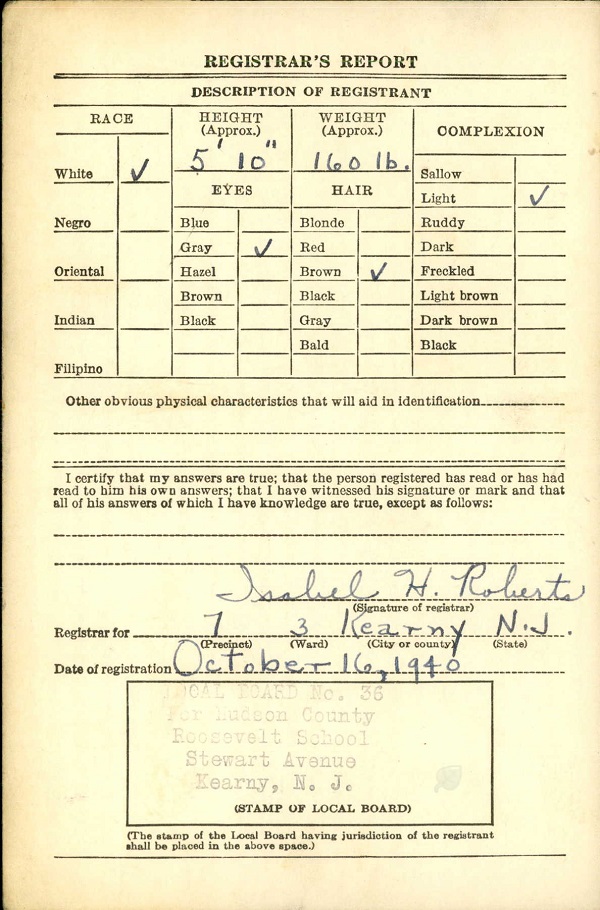 REGISTRAR'S REPORT
DESCRIPTION OF REGISTRANT
RACE
HEIGHT
(Approx.)
WEIGHT
(Approx.)
COMPLEXION
5' 10"
160 lb.
White ✓
EYES
HAIR
Sallow
Light ✓
Negro
Blue
Blonde
Ruddy
Gray ✓
Red
Dark
Oriental
Hazel
Brown ✓
Freckled
Brown
Black
Light brown
Indian
Black
Gray
Dark brown
Bald
Black
Filipino
Other obvious physical characteristics that will aid in identification
I certify that my answers are true; that the person registered has read or has had
read to him his own answers; that I have witnessed his signature or mark and that
all of his answers of which I have knowledge are true, except as follows:
Isabel H. Roberts
(Signature of registrar)
Registrar for 7 3 Kearny N.J.
(Precinct) (Ward) (City or county) (State)
Date of registration October 16, 1940
LOCAL BOARD No. 36
For Hudson County
Roosevelt School
Stewart Avenue
Kearny, N. J.
(STAMP OF LOCAL BOARD)
(The stamp of the Local Board having jurisdiction of the registrant
shall be placed in the above space.)